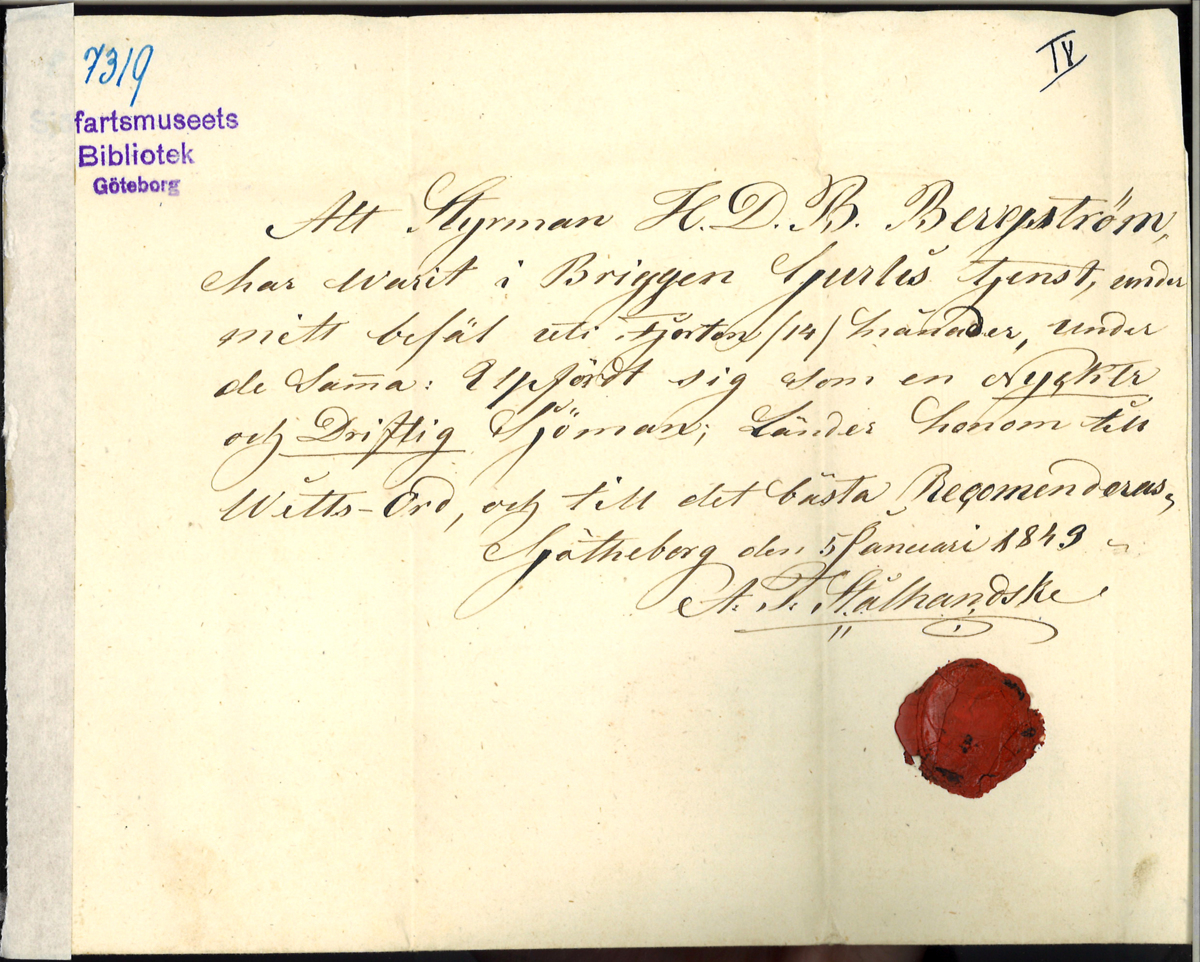 7319
IV
fartsmuseets
Bibliotek
Göteborg
Att Styrman H. D. B. Bergström,
har warit i Briggen tjenst, under
mitt befäl uti Fjorton /14/ månader, under
de Sama: Uppfördt sig som en Nyckter
och Driftig Sjöman; Länder honom till
Witts-Ord, och till det bästa Recomenderas,
Götheborg den 5 Januari 1843
A. F. Stålhandske